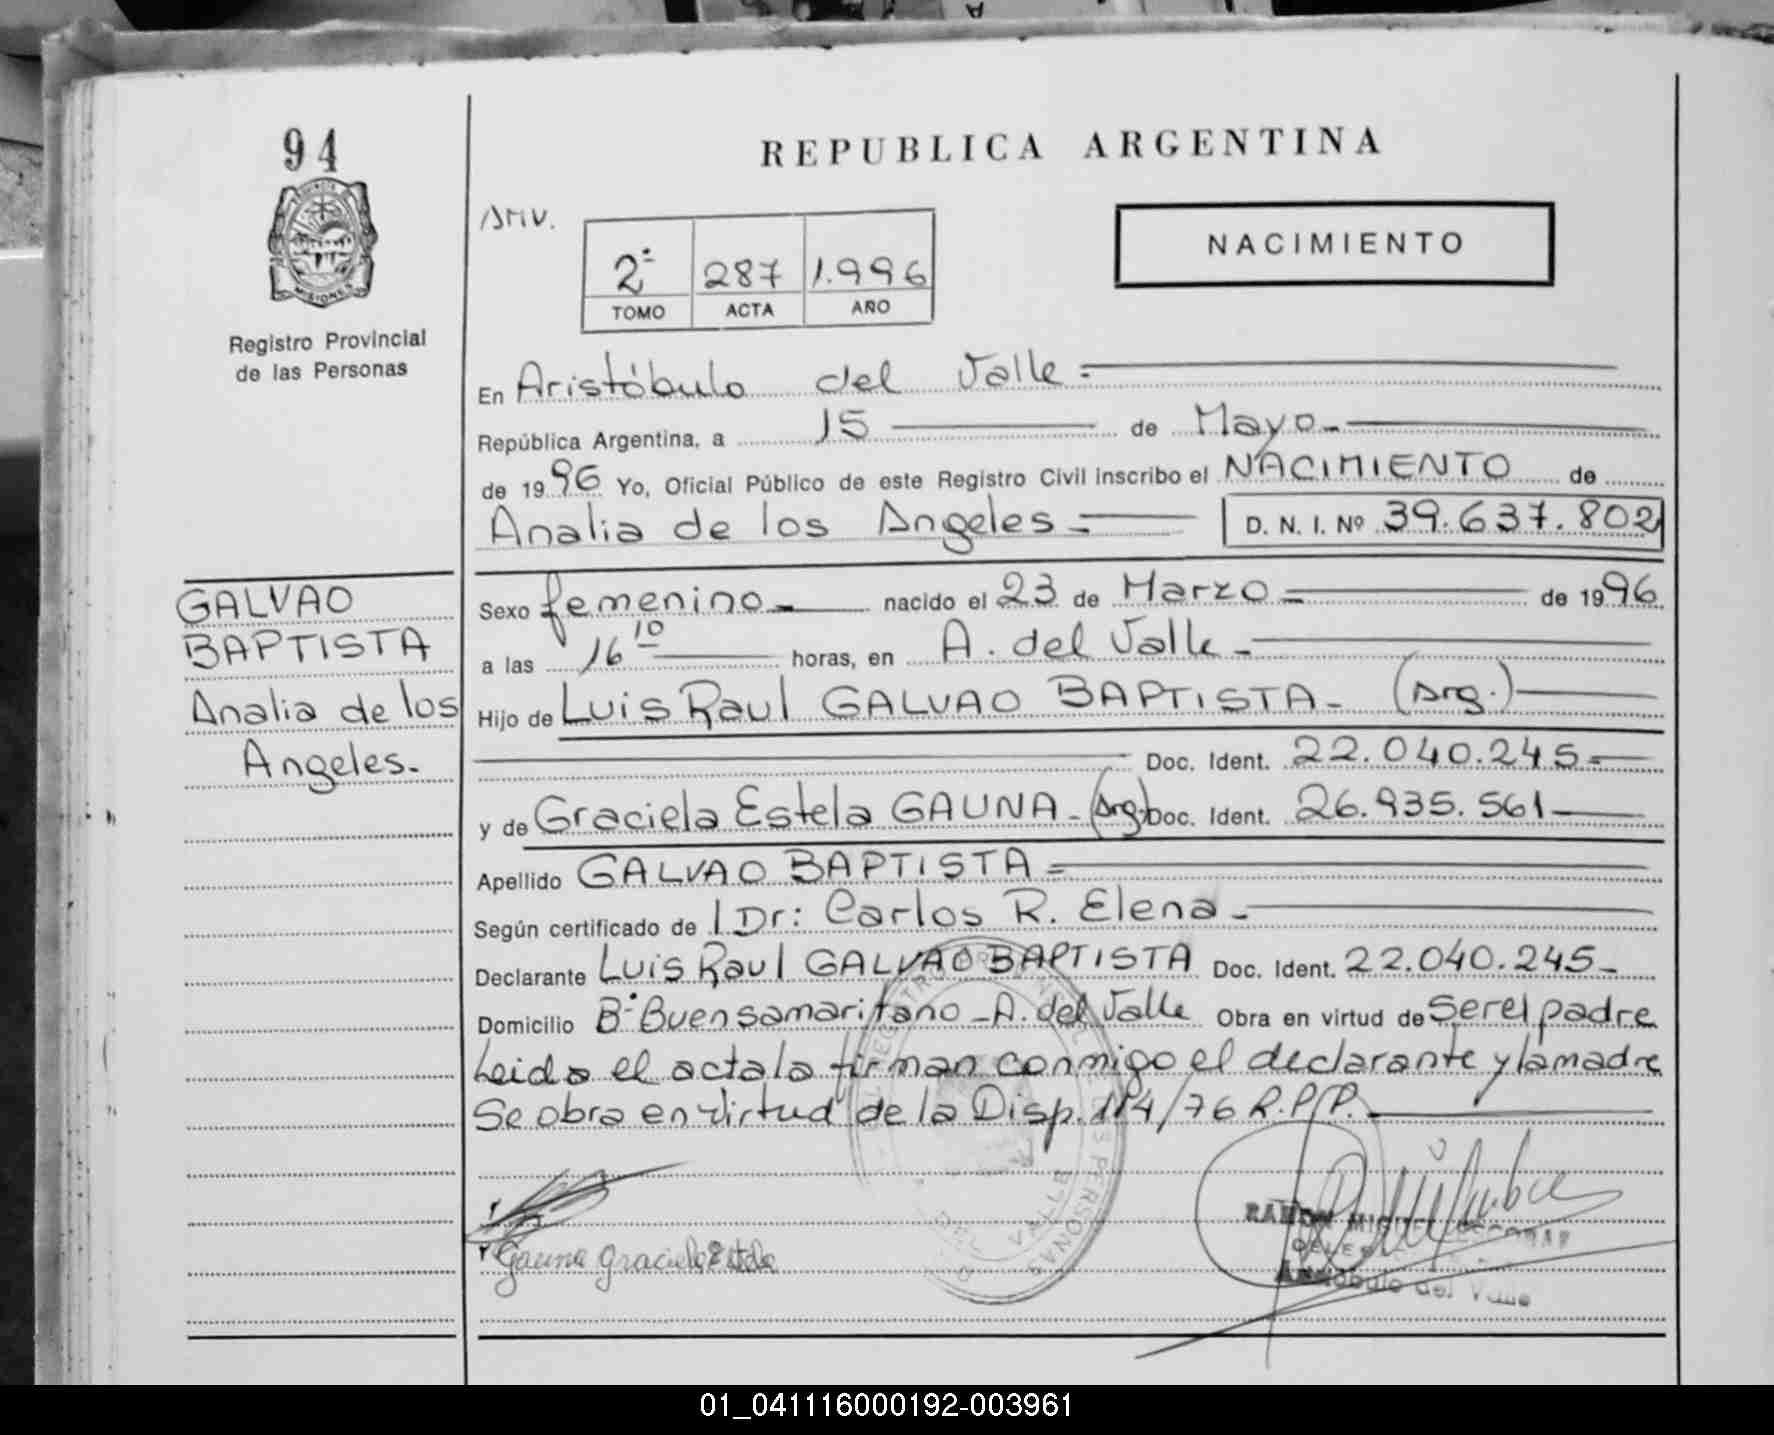 94
MISIONES
Registro Provincial
de las Personas
REPUBLICA ARGENTINA
AMV.
2º 287 1.996
TOMO ACTA AÑO
NACIMIENTO
En Aristóbulo del Valle =
República Argentina, a 15 de Mayo
de 1996 Yo, Oficial Público de este Registro Civil inscribo el NACIMIENTO de
Analia de los Angeles D. N. I. Nº 39.637.802
GALVAO
BAPTISTA
Analia de los
Angeles.
Sexo femenino nacido el 23 de Marzo de 1996
a las 16 10 horas, en A. del Valle
Hijo de Luis Raul GALVAO BAPTISTA (Arg.)
Doc. Ident. 22.040.245
y de Graciela Estela GAUNA (Arg.) Doc. Ident. 26.935.561
Apellido GALVAO BAPTISTA
Según certificado de l Dr: Carlos R. Elena
Declarante Luis Raul GALVAO BAPTISTA Doc. Ident. 22.040.245
Domicilio Bº Buen Samaritano - A. del Valle Obra en virtud de ser el padre
Leida el acta la firman conmigo el declarante y la madre
Se obra en virtud de la Disp. 114/76 R.P.P.
Gauna Graciela Estela
RAMON MIGUEL ESCOBAR
Aristóbulo del Valle
01_041116000192-003961